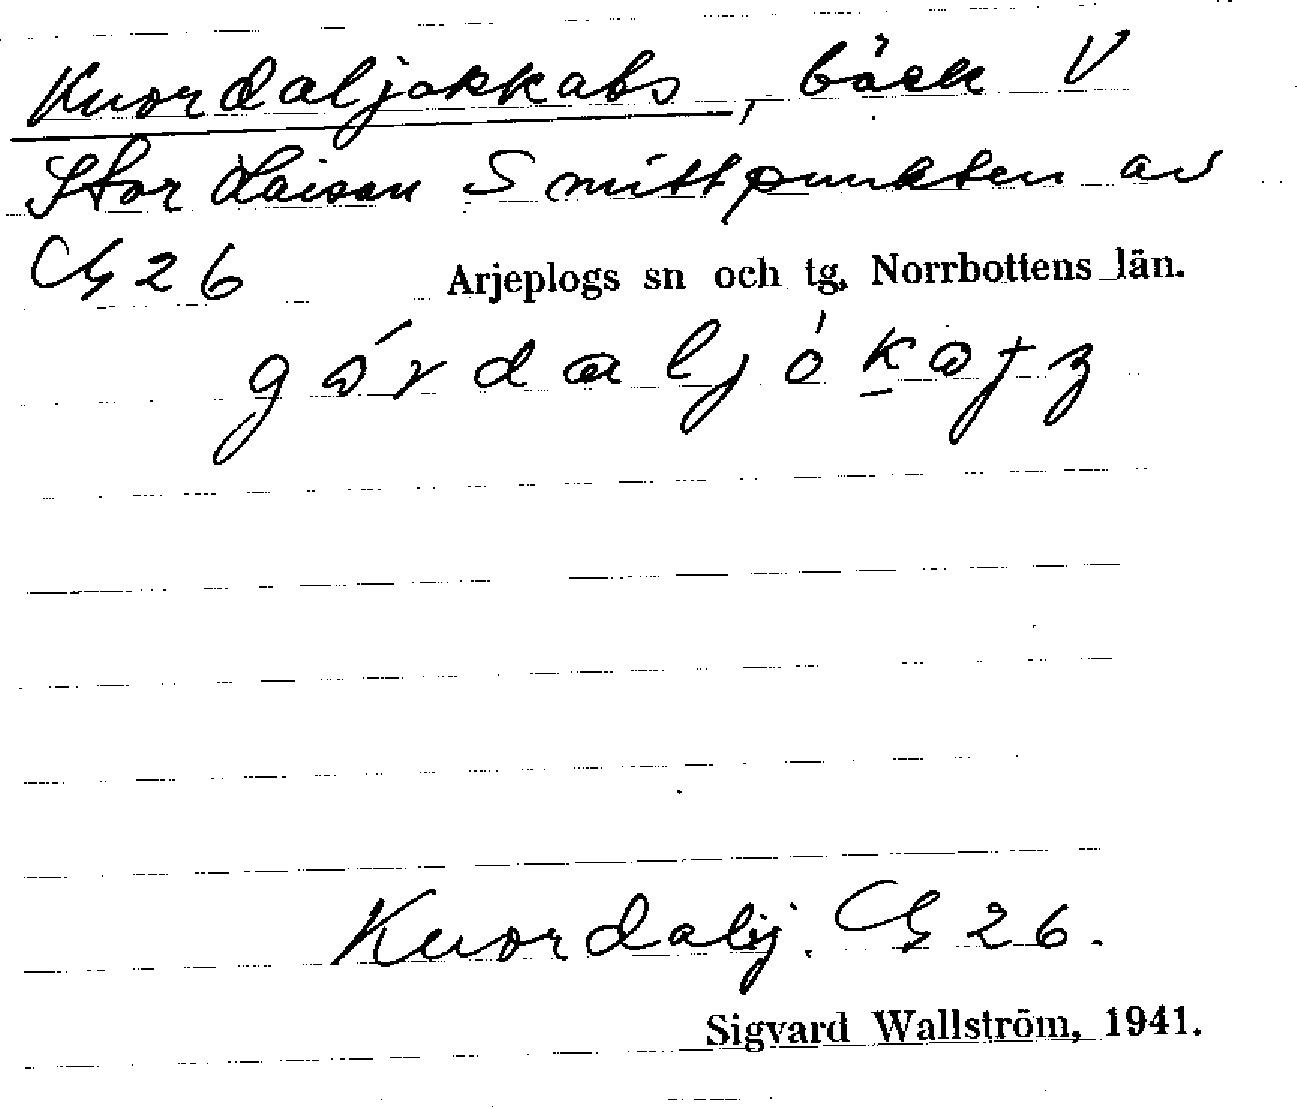 Kuordaljokkabs, bäck V
Stor Laisan S mittpunkten av
G 26 Arjeplogs sn och tg, Norrbottens län.
gårdaljòkatʒ
Kuordalij. G 26.
Sigvard Wallström, 1941.